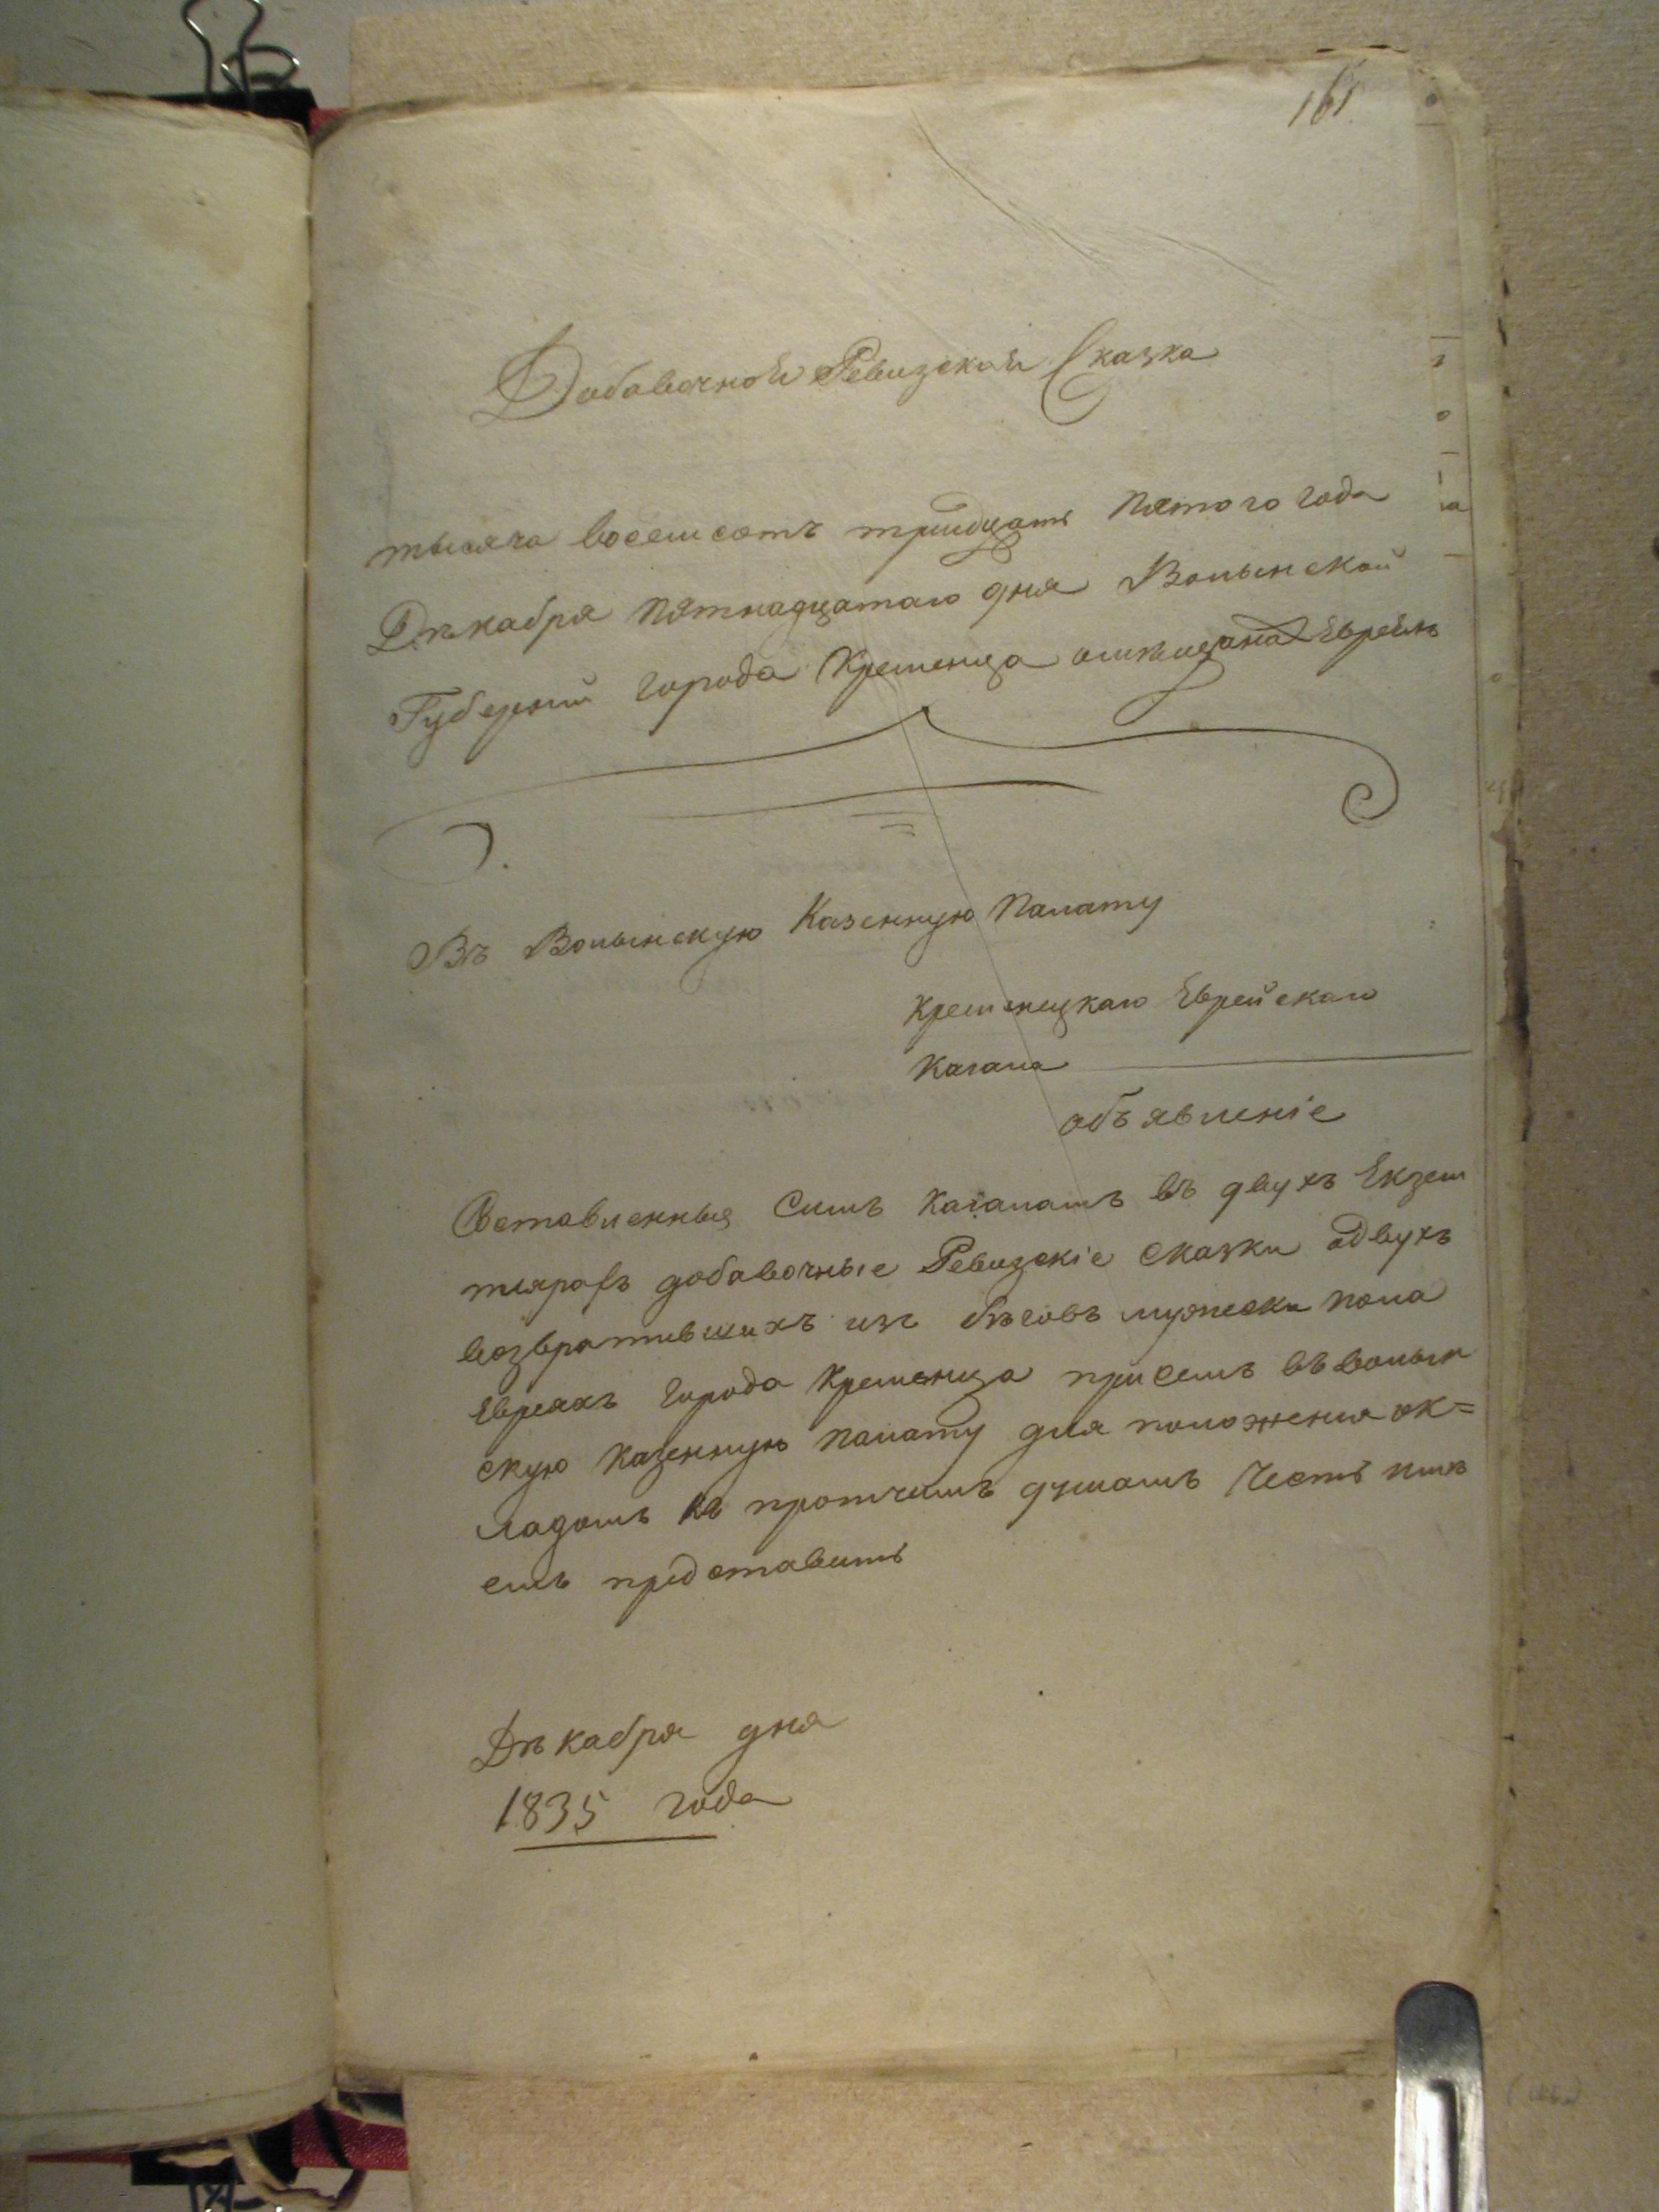 161
Добавочной Ревизской Сказка
тысяча восемсотъ тридцать пятого года
Дѣкабря пятнадцатаго дня Волынской
Губерніи города Кременца омѣщанахъ Евреяхъ
Въ Волынскую Казенную Палату
Кременецкаго Еврейскаго
Кагала
объявленіе
Составленныя Симъ Кагаломъ въ двухъ Екзем
плярахъ добавочные Ревизскіе сказки одвухъ
возвратившихъ изъ бѣговъ мужеска пола
Евреяхъ города Кременца присемъ вволын
скую Казенную палату для положенія ок=
ладомъ къ протчимъ душамъ Честь имѣ
емъ представить
Дѣкабря дня
1835 года